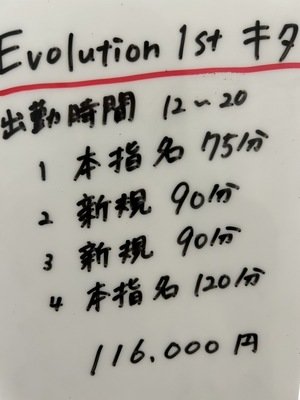 Evolution 1st キタ
出勤時間 12～20
1 本指名 75分
2 新規 90分
3 新規 90分
4 本指名 120分
116.000円